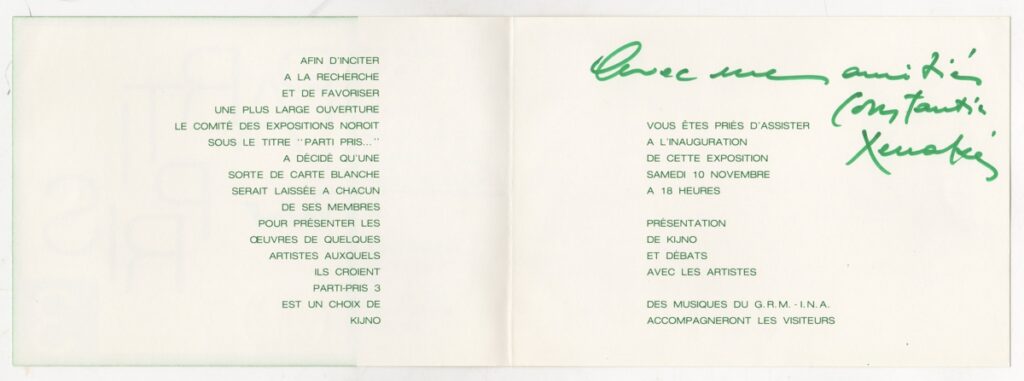 AFIN D'INCITER
A LA RECHERCHE
ET DE FAVORISER
UNE PLUS LARGE OUVERTURE
LE COMITÉ DES EXPOSITIONS NOROIT
SOUS LE TITRE "PARTI PRIS..."
A DÉCIDÉ QU'UNE
SORTE DE CARTE BLANCHE
SERAIT LAISSÉE A CHACUN
DE SES MEMBRES
POUR PRÉSENTER LES
ŒUVRES DE QUELQUES
ARTISTES AUXQUELS
ILS CROIENT
PARTI-PRIS 3
EST UN CHOIX DE
KIJNO
Avec mes amitiés
Constantin
Xenakis
VOUS ÊTES PRIÉS D'ASSISTER
A L'INAUGURATION
DE CETTE EXPOSITION
SAMEDI 10 NOVEMBRE
A 18 HEURES
PRÉSENTATION
DE KIJNO
ET DÉBATS
AVEC LES ARTISTES
DES MUSIQUES DU G.R.M. - I.N.A.
ACCOMPAGNERONT LES VISITEURS